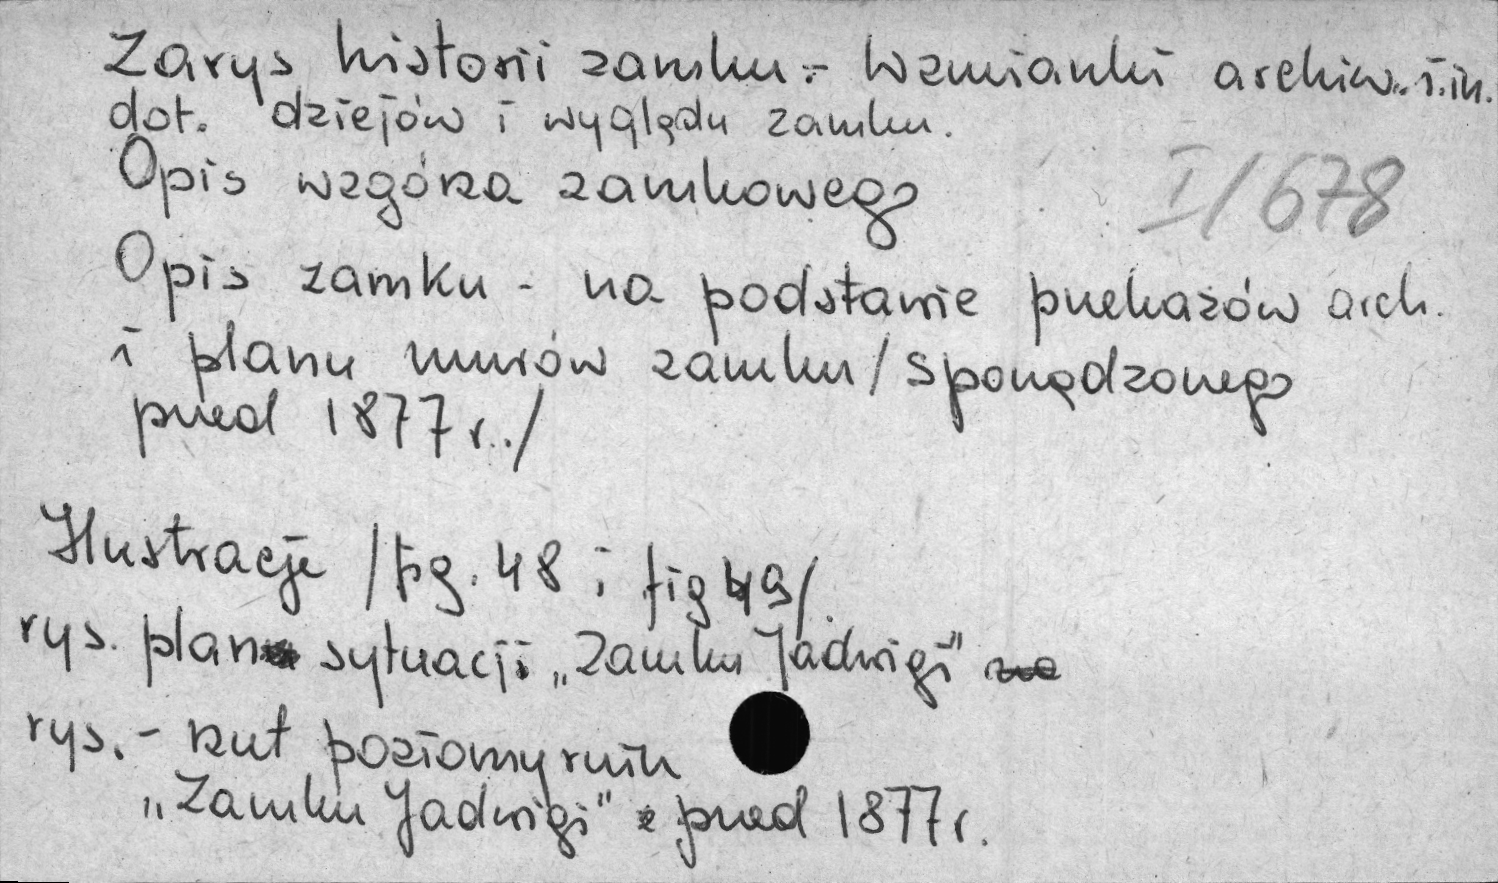 Zarys historii zamku - Wzmianki archiw. i.in.
dot. dziejów i wyglądu zamku.
Opis wzgórza zamkowego
I/678
Opis zamku - na podstawie przekazów arch.
i planu murów zamku /sporządzonego
przed 1877 r./
Ilustracje /fig. 48 i fig 49/.
rys. plan sytuacji „Zamku Jadwigi"
rys. - rzut poziomy ruin
„Zamku Jadwigi" z przed 1877 r.